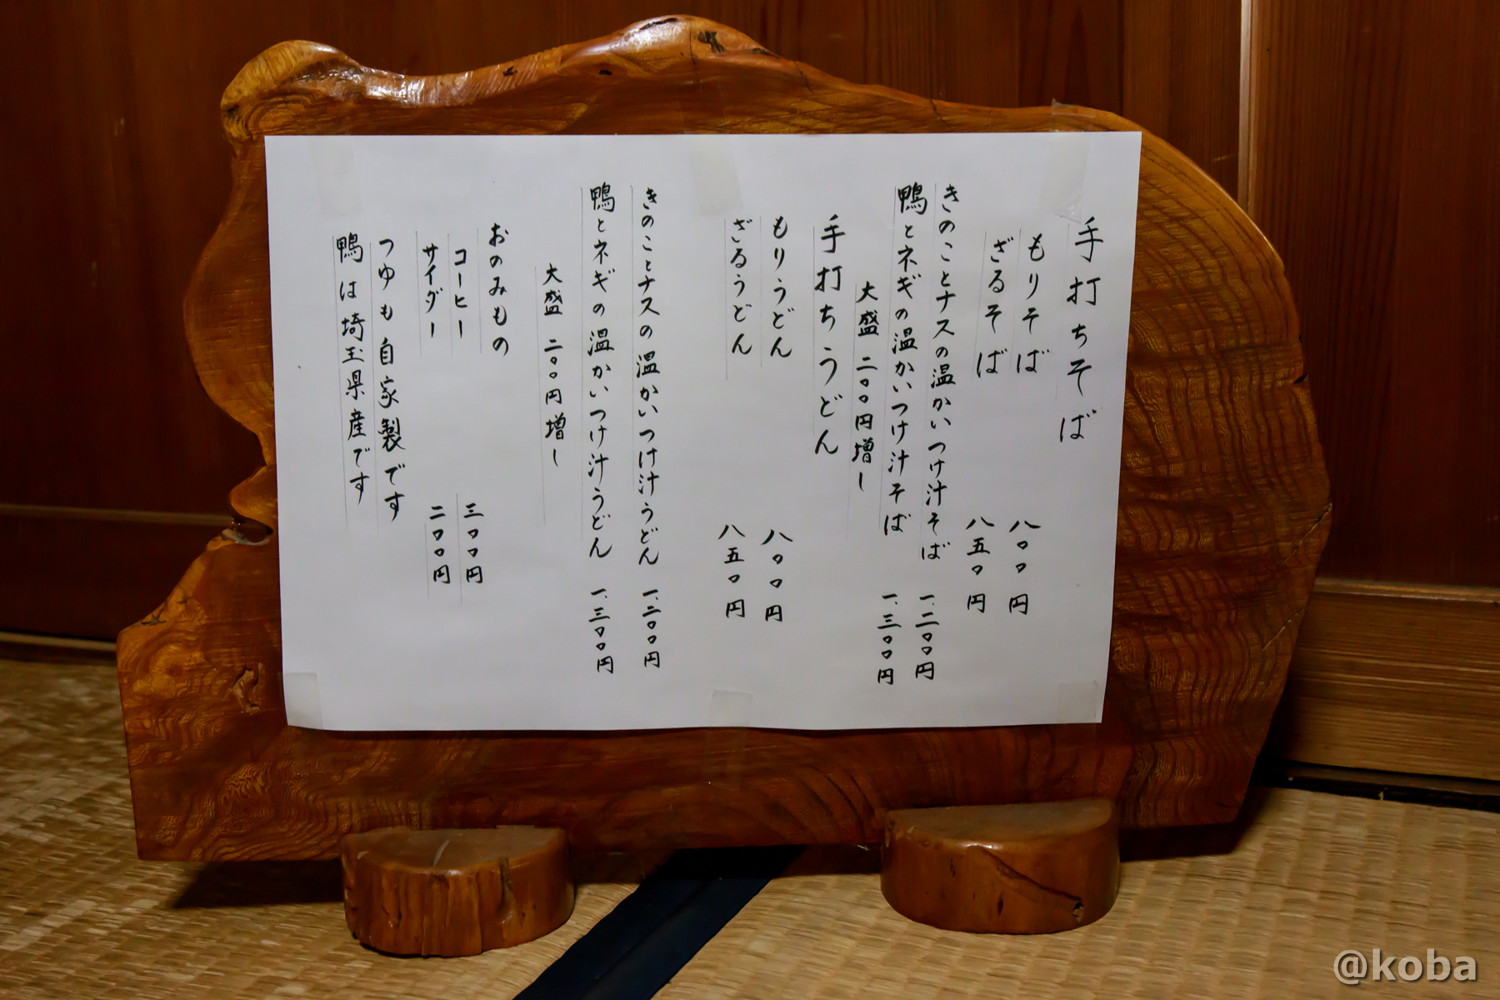 手打ちそば
もりそば 八〇〇円
ざるそば 八五〇円
きのことナスの温かいつけ汁そば 一、二〇〇円
鴨とネギの温かいつけ汁そば 一、三〇〇円
大盛 二〇〇円増し
手打ちうどん
もりうどん 八〇〇円
ざるうどん 八五〇円
きのことナスの温かいつけ汁うどん 一、二〇〇円
鴨とネギの温かいつけ汁うどん 一、三〇〇円
大盛 二〇〇円増し
おのみもの
コーヒー 三〇〇円
サイダー 二〇〇円
つゆも自家製です
鴨は埼玉県産です
@koba